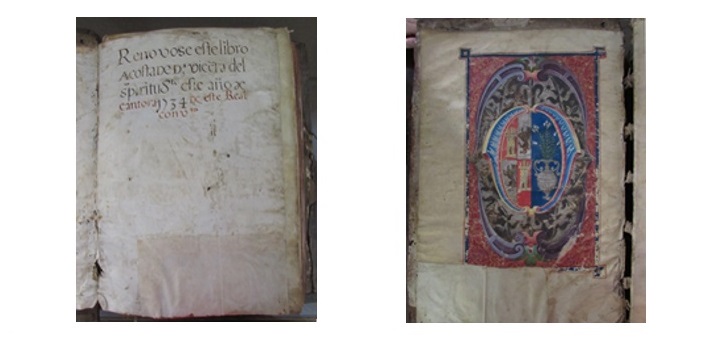 Renovose este libro
Acosta De D.ª vicera del
spiritu Sto este año de
cantora 1734 de este Real
convto